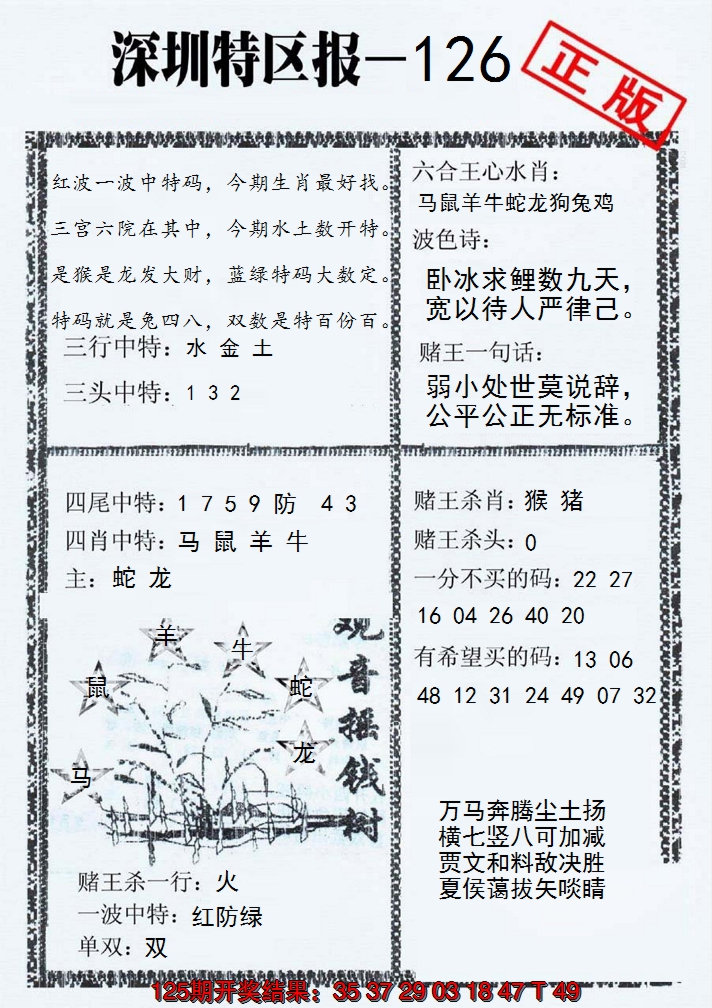 深圳特区报—126
正版
红波一波中特码，今期生肖最好找。
三宫六院在其中，今期水土数开特。
是猴是龙发大财，蓝绿特码大数定。
特码就是兔四八，双数是特百份百。
三行中特：水 金 土
三头中特：1 3 2
六合王心水肖：
马鼠羊牛蛇龙狗兔鸡
波色诗：
卧冰求鲤数九天，
宽以待人严律己。
赌王一句话：
弱小处世莫说辞，
公平公正无标准。
四尾中特：1 7 5 9 防 4 3
四肖中特：马 鼠 羊 牛
主：蛇 龙
羊
牛
鼠
蛇
龙
马
观音摇钱树
赌王杀一行：火
一波中特：红防绿
单双：双
赌王杀肖：猴 猪
赌王杀头：0
一分不买的码：22 27
16 04 26 40 20
有希望买的码：13 06
48 12 31 24 49 07 32
万马奔腾尘土扬
横七竖八可加减
贾文和料敌决胜
夏侯蔼拔矢啖睛
125期开奖结果：35 37 29 03 18 47 T 49